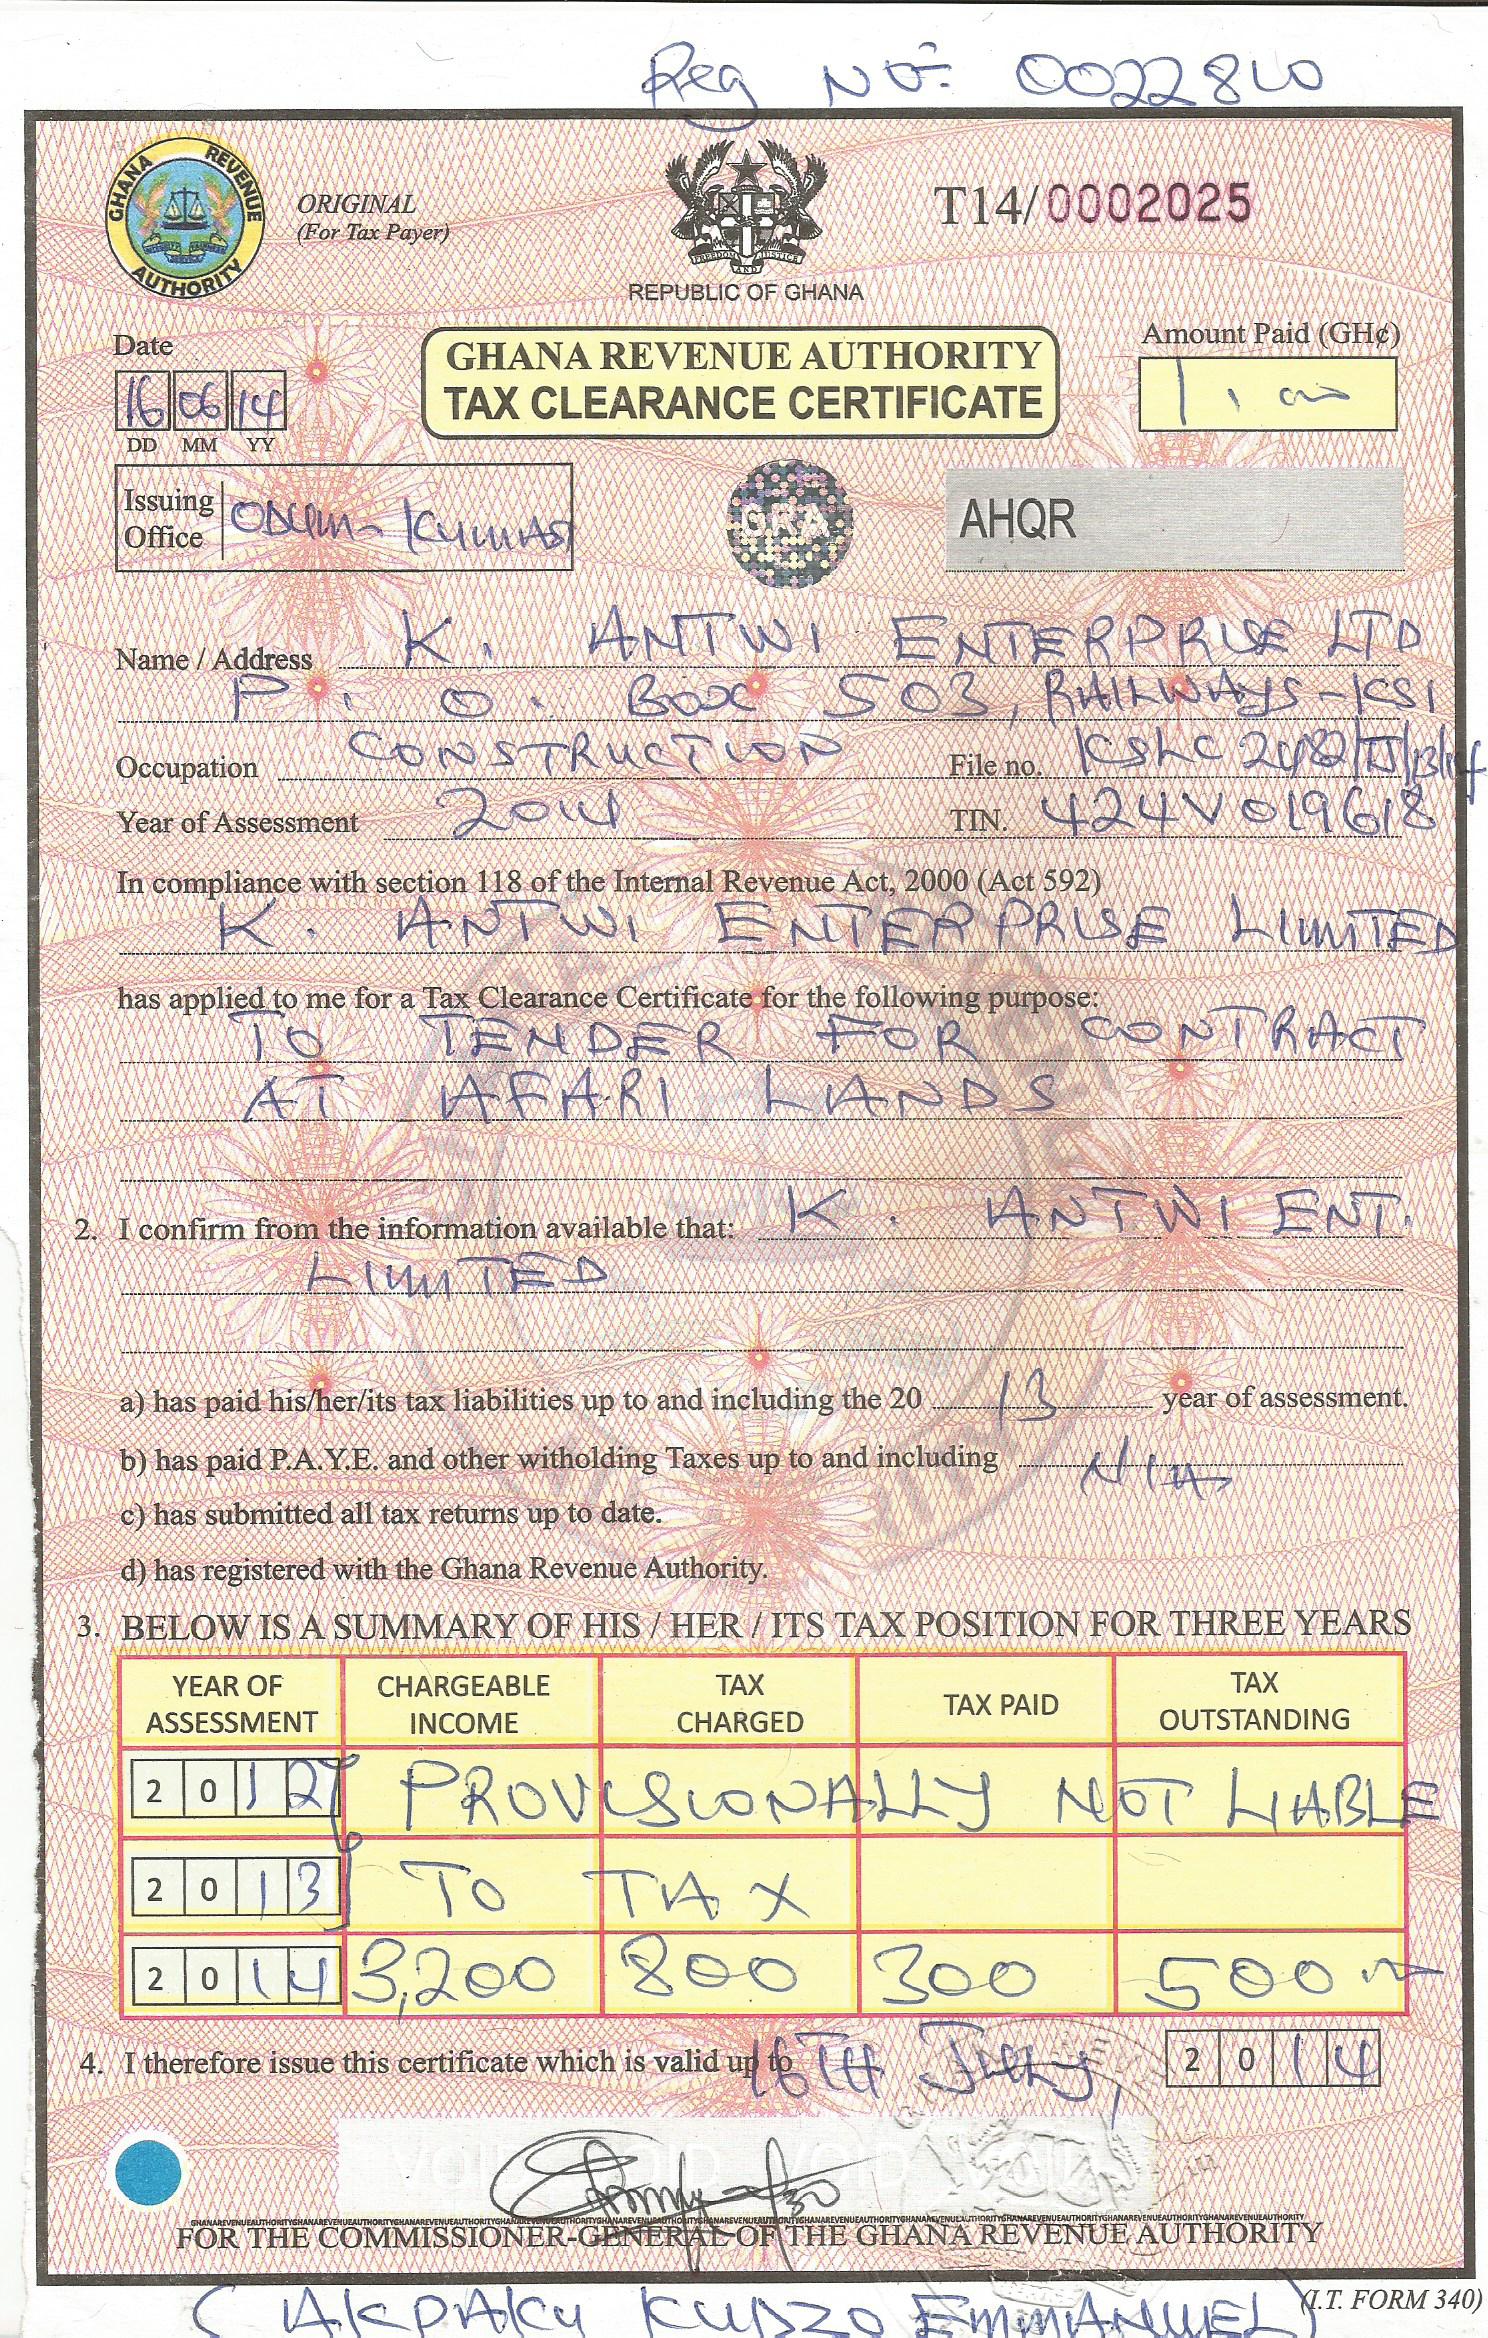 Reg No: 0022810
GHANA REVENUE AUTHORITY
ORIGINAL
(For Tax Payer)
FREEDOM AND JUSTICE
REPUBLIC OF GHANA
T14/0002025
Date
16 06 14
DD MM YY
GHANA REVENUE AUTHORITY
TAX CLEARANCE CERTIFICATE
Amount Paid (GH¢)
Issuing Office
ODUM - KUMASI
GRA
AHQR
Name / Address K. ANTWI ENTERPRISE LTD
P. O. BOX 503, RAILWAYS-KSI
Occupation CONSTRUCTION File no.
Year of Assessment 2014 TIN. 424V019618
In compliance with section 118 of the Internal Revenue Act, 2000 (Act 592)
K. ANTWI ENTERPRISE LIMITED
has applied to me for a Tax Clearance Certificate for the following purpose:
TO TENDER FOR CONTRACT
AT AFARI LANDS
2. I confirm from the information available that: K. ANTWI ENT.
LIMITED
a) has paid his/her/its tax liabilities up to and including the 20 13 year of assessment.
b) has paid P.A.Y.E. and other witholding Taxes up to and including N/A
c) has submitted all tax returns up to date.
d) has registered with the Ghana Revenue Authority.
3. BELOW IS A SUMMARY OF HIS / HER / ITS TAX POSITION FOR THREE YEARS
YEAR OF ASSESSMENT CHARGEABLE INCOME TAX CHARGED TAX PAID TAX OUTSTANDING
2012 PROVISIONALLY NOT LIABLE
2013 TO TAX
2014 3,200 800 300 500
4. I therefore issue this certificate which is valid up to 16TH JULY, 2014
VOID VOID VOID VOID
GHANAREVENUEAUTHORITYGHANAREVENUEAUTHORITYGHANAREVENUEAUTHORITY
FOR THE COMMISSIONER-GENERAL OF THE GHANA REVENUE AUTHORITY
(I.T. FORM 340)
(AKPAKU KUDZO EMMANUEL)